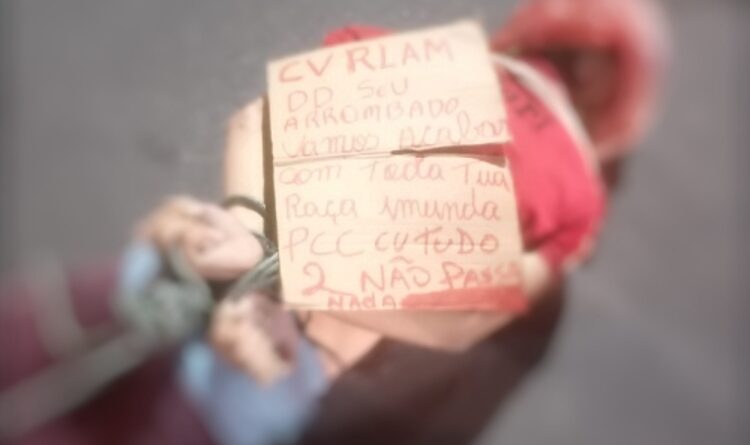 CV RLAM
DD SEU
ARROMBADO
Vamos Acabar
com Toda Tua
Raça imunda
PCC CV TUDO
2 NÃO PASSA
NADA